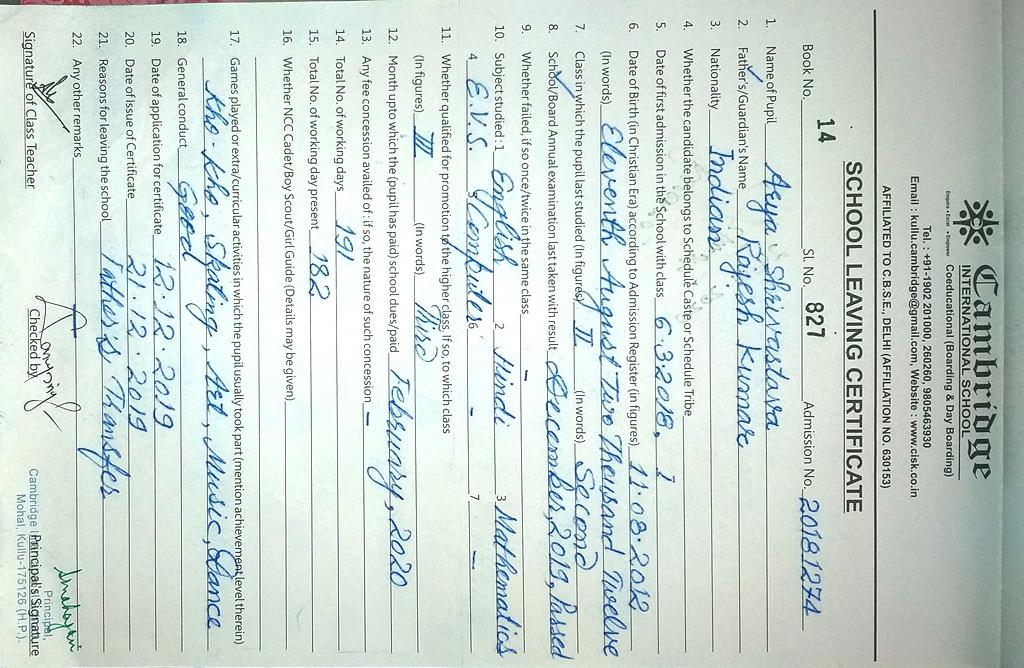 Cambridge
INTERNATIONAL SCHOOL
Enquire • Excel • Empower
Coeducational (Boarding & Day Boarding)
Tel. : +91-1902 201000, 260260, 9805463930
Email : kullu.cambridge@gmail.com, Website : www.cisk.co.in
AFFILIATED TO C.B.S.E., DELHI (AFFILIATION NO. 630153)
SCHOOL LEAVING CERTIFICATE
Book No. 14 Sl. No. 827 Admission No. 20181274
1. Name of Pupil Arya Shrivastava
2. Father's/Guardian's Name Rajesh Kumar
3. Nationality Indian
4. Whether the candidate belongs to Schedule Caste or Schedule Tribe
5. Date of first admission in the School with class 6.3.2018, I
6. Date of Birth (in Christian Era) according to Admission Register (in figures) 11.08.2012
(In words) Eleventh August Two Thousand Twelve
7. Class in which the pupil last studied (In figures) II (In words) Second
8. School/Board Annual examination last taken with result December, 2019, Passed
9. Whether failed, if so once/twice in the same class -
10. Subject studied : 1 English 2 Hindi 3 Mathematics
4 E.V.S. 5 Computer 6 - 7 -
11. Whether qualified for promotion to the higher class. If so, to which class
(In figures) III (In words) Third
12. Month upto which the (pupil has paid) school dues/paid February, 2020
13. Any fee concession availed of : if so, the nature of such concession -
14. Total No. of working days 191
15. Total No. of working day present 182
16. Whether NCC Cadet/Boy Scout/Girl Guide (Details may be given)
17. Games played or extra/curricular activities in which the pupil usually took part (mention achievement level therein)
Kho-Kho, Skating, Art, Music, Dance
18. General conduct Good
19. Date of application for certificate 12.12.2019
20. Date of Issue of Certificate 21.12.2019
21. Reasons for leaving the school Father's Transfer
22. Any other remarks
Signature of Class Teacher Checked by Principal's Signature
Principal,
Cambridge
Mohal, Kullu-175126 (H.P.).